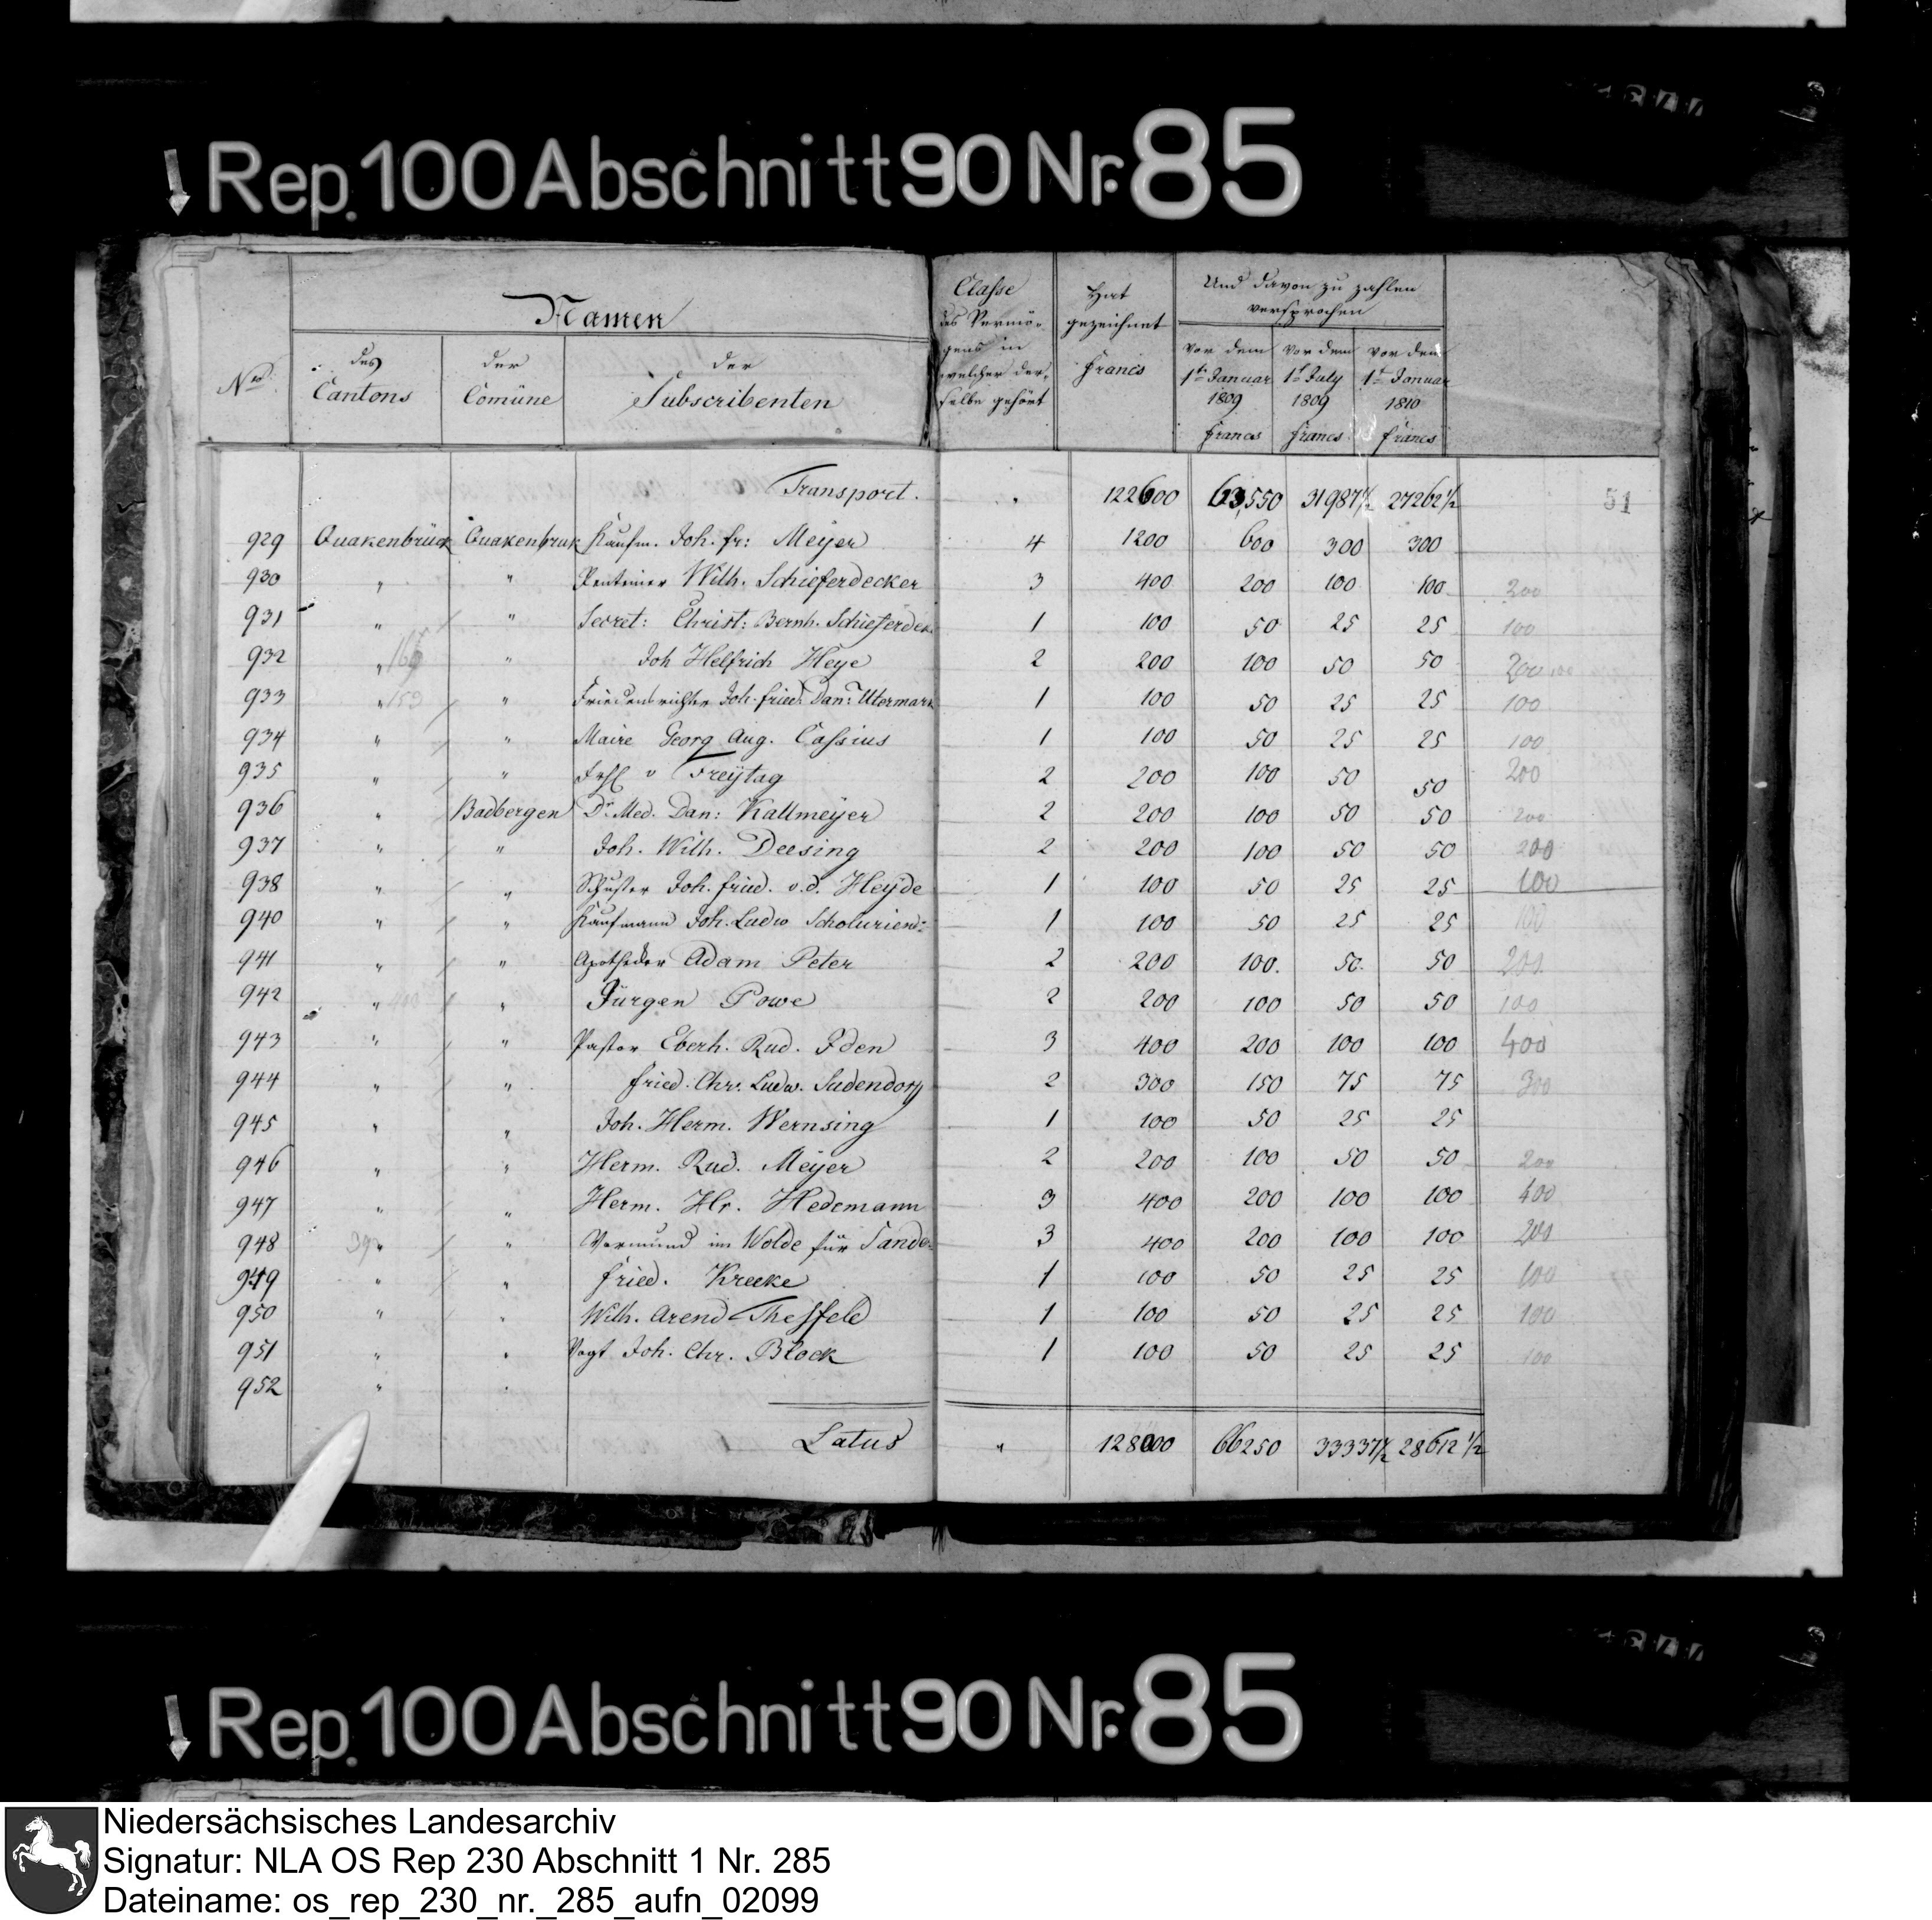 Rep. 100 Abschnitt 90 Nr. 85
Namen
No. des Cantons der Comüne der Subscribenten
Classe des Vermögens in welcher derselbe gehört
Hat gezeichnet Francs
Und davon zu zahlen versprochen
vor dem 1ten Januar 1809 Francs
vor dem 1ten July 1809 Francs
vor dem 1ten Januar 1810 Francs
51
Transport. 122600 63,550 31987 1/2 27262 1/2
929 Quakenbrück Quakenbruk Kaufm. Joh. fr: Meÿer 4 1200 600 300 300
930 " " Rentmer Wilh. Schieferdecker 3 400 200 100 100 200
931 " " Secret: Christ: Bernh. Schieferdek. 1 100 50 25 25 100
932 " " Joh Helfrich Heye 2 200 100 50 50 200
933 " 159 " Friedensrichter Joh. fried. Dan: Utermark 1 100 50 25 25 100
934 " " Maire Georg Aug. Cassius 1 100 50 25 25 100
935 " " v Freÿtag 2 200 100 50 50 200
936 " Badbergen Dr. Med. Dan: Kallmeÿer 2 200 100 50 50 200
937 " " Joh. Wilh. Deesing 2 200 100 50 50 200
938 " " Schuster Joh. fried. v.d. Heÿde 1 100 50 25 25 100
940 " " Kaufmann Joh. Ludw 1 100 50 25 25 100
941 " " Apotheker Adam Peter 2 200 100. 50. 50 200
942 " " Jürgen Powe 2 200 100 50 50 100
943 " " Pastor Eberh. Rud. Iden 3 400 200 100 100 400
944 " " fried. Chr. Ludw. Sudendorf 2 300 150 75 75 300
945 " " Joh. Herm. Wernsing 1 100 50 25 25
946 " " Herm. Rud. Meÿer 2 200 100 50 50 200
947 " " Herm. Hr. Hedemann 3 400 200 100 100 400
948 " " Vormund im Wolde für Tande 3 400 200 100 100 200
949 " " fried. Kreeke 1 100 50 25 25 100
950 " " Wilh. Arend Thesfeld 1 100 50 25 25 100
951 " " Vogt Joh. Chr. Block 1 100 50 25 25 100
952 " "
Latus " 128000 66250 33337 1/2 28612 1/2
Rep. 100 Abschnitt 90 Nr. 85
Niedersächsisches Landesarchiv
Signatur: NLA OS Rep 230 Abschnitt 1 Nr. 285
Dateiname: os_rep_230_nr._285_aufn_02099